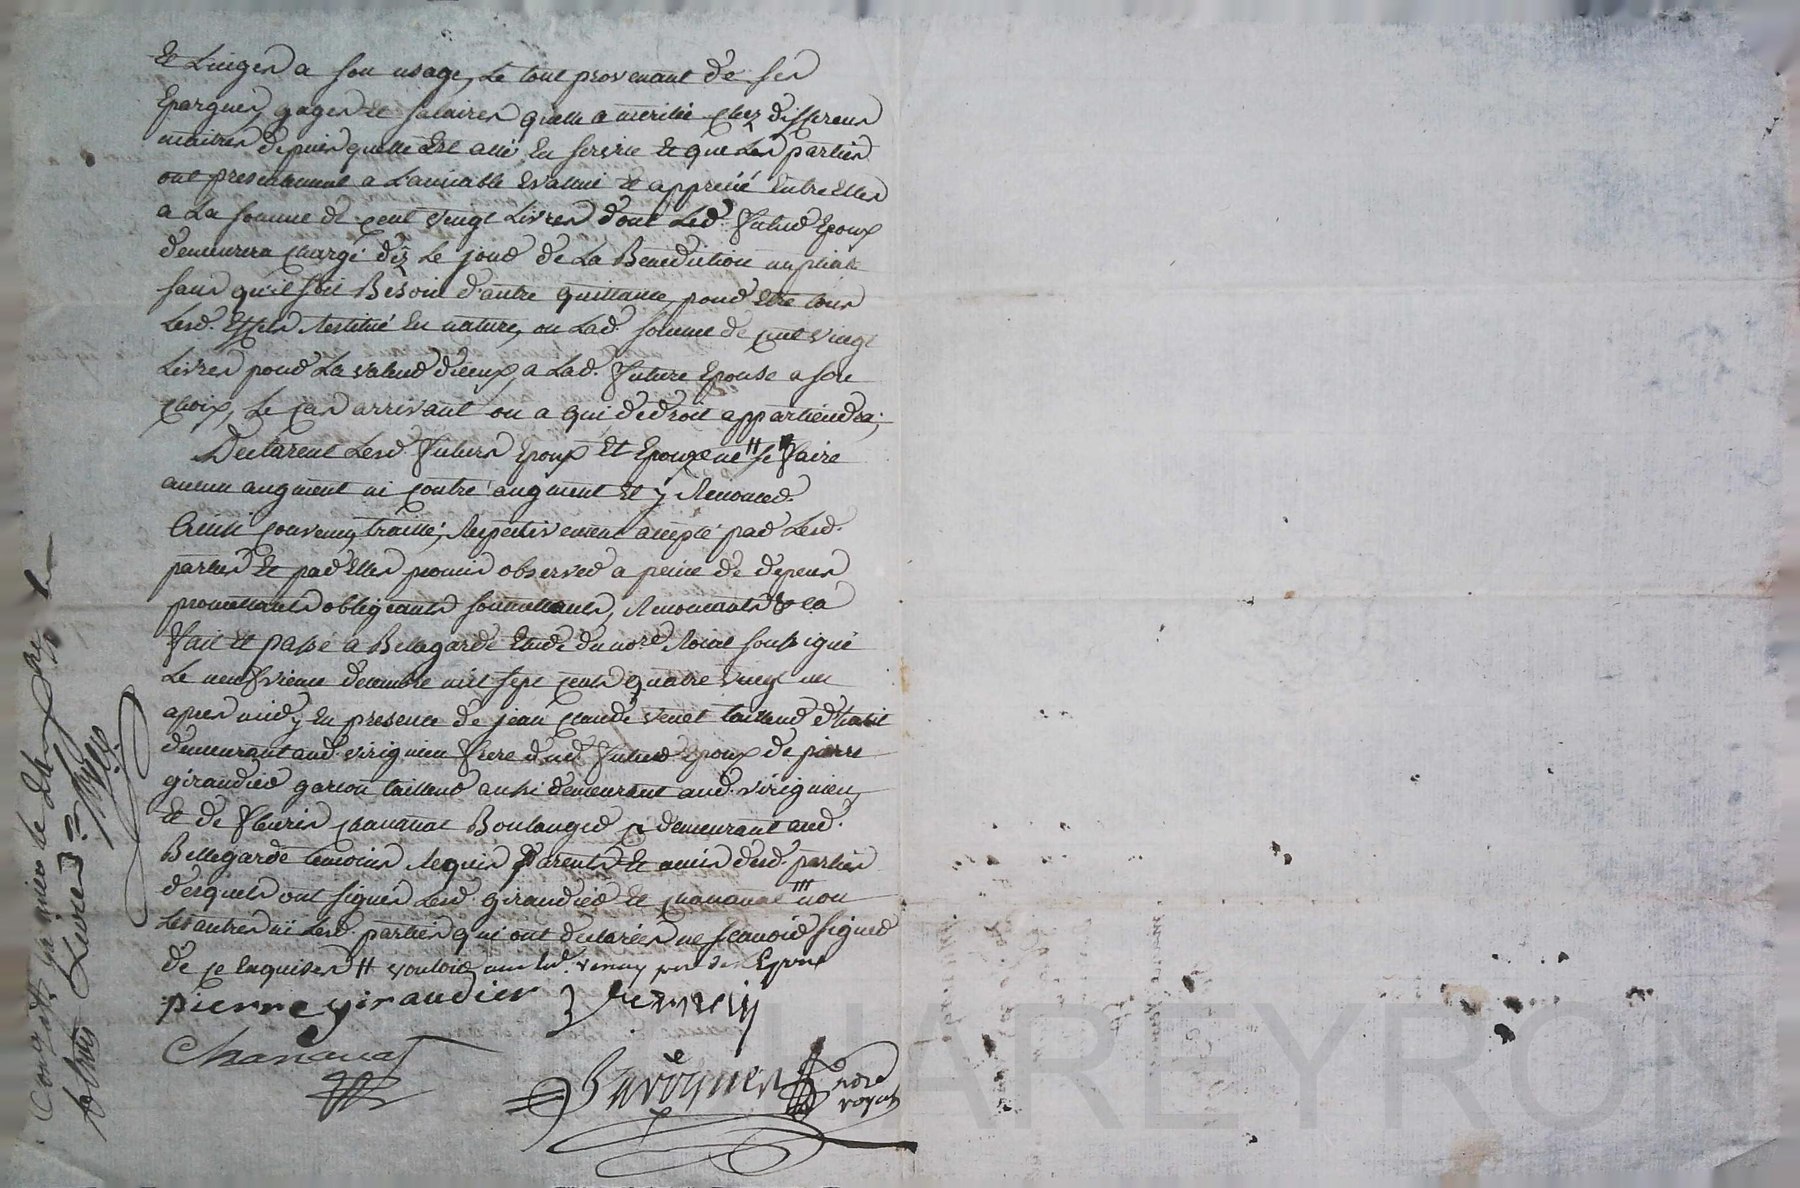 et Linges a son usage, Le tout provenant de ses
Epargnes, gages et salaires quelle a merité chez differens
maitres depuis quelle Est allé En service et que Les parties
ont presentement a Lamiable Evalué et apprecié Entre Elles
a La somme de cent vingt Livres dont Led. Futur Epoux
demeurera chargé dez Le jour de La Benediction nuptiale
sans qu'il soit Besoin d'autre quittance, pour Etre tous
Lesd. Effets Restitué En nature, ou Lad. somme de cent vingt
Livres pour La valeur d'iceux, a Lad. Future Epouse a son
choix, Le cas arrivant ou a qui de droit appartiendra;
Declarent Lesd. Futurs Epoux Et Epouse ne // se Faire
aucun augment ni contre augment Et y Renoncer.
Ainsi convenu, traitté, Respectivement accepté par Lesd.
parties Et par Elles promis observer a peine de depens
promettants obligeants soumettants, Renonceants & ca
Fait et passé à Bellegarde Etude du no.re Roial soussigné
Le neufvieme decembre mil sept cents quatre vingt un
apres midy En presence de jean claude venet tailleur d'habit
demeurant aud. virignieu frere dud. Futur Epoux de pierre
giraudier garçon tailleur aussi demeurant aud. virignieu,
et de Fleuris chanavat Boulanger demeurant aud.
Bellegarde temoins Requis parents et amis desd. parties
desquels ont signés Lesd. giraudier et chanavat /// non
Les autres ni Lesd. parties qui ont declarées ne scavoir signer
de ce Enquises // vouloir
pierre giraudier
Chanavat
no.re
royal
Livres